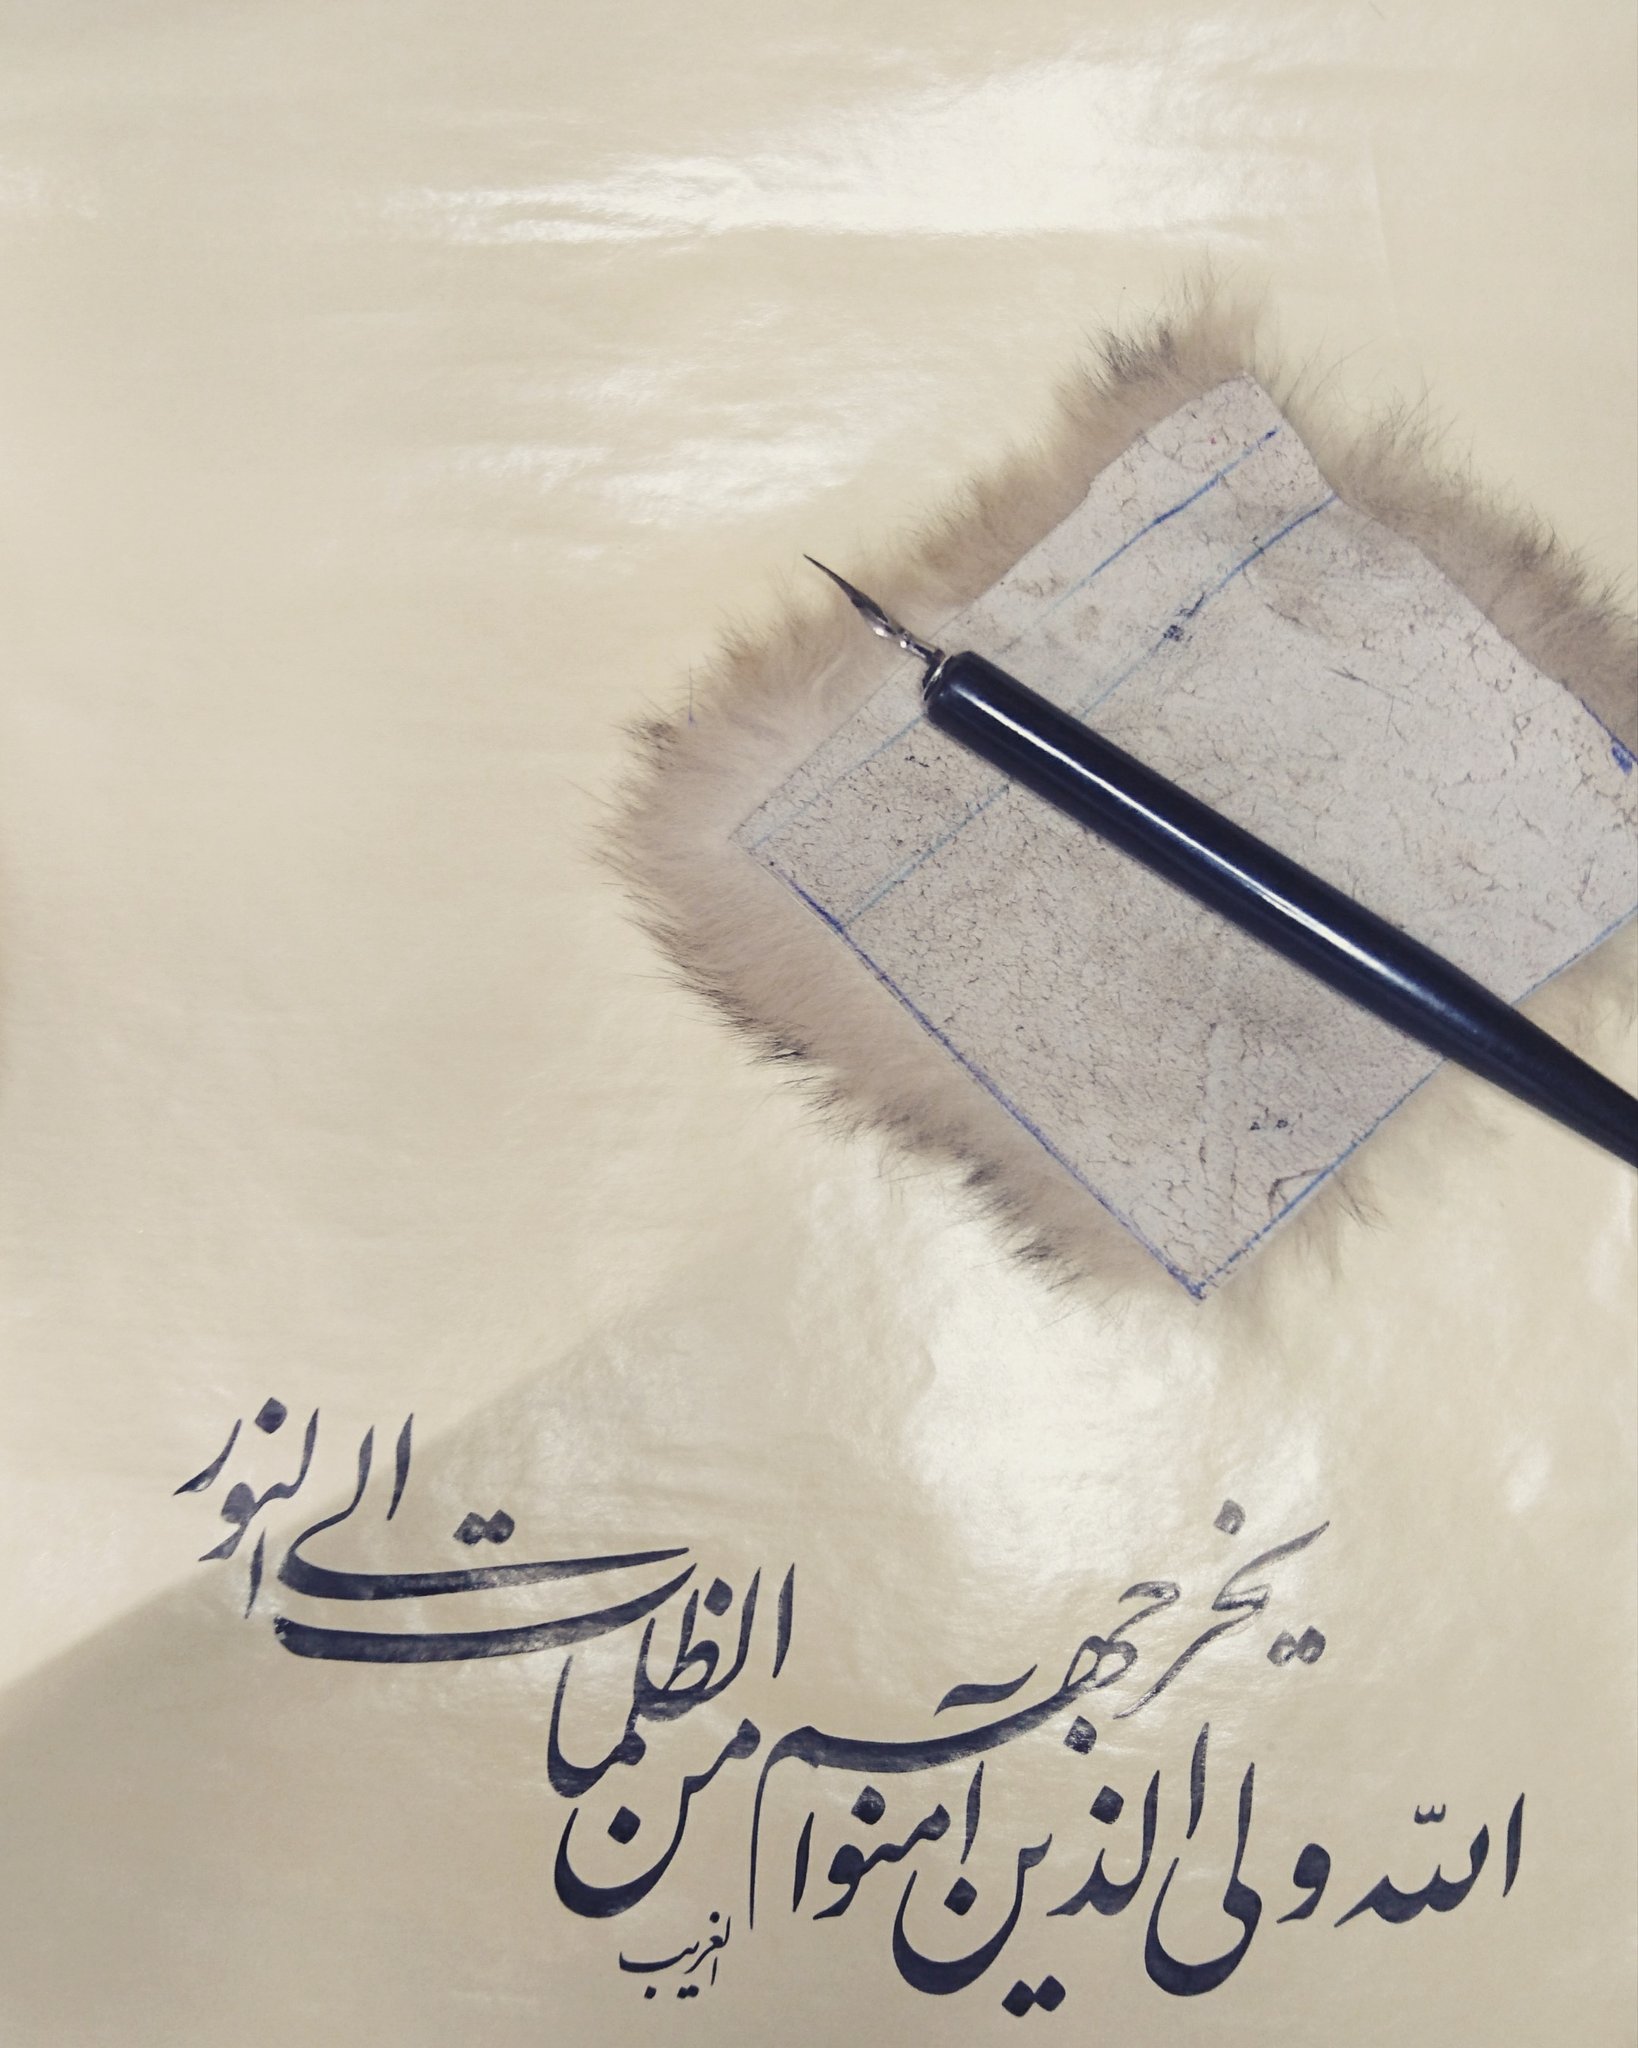 الله ولی الذین امنوا یخرجهم من الظلمات الی النور
الغریب